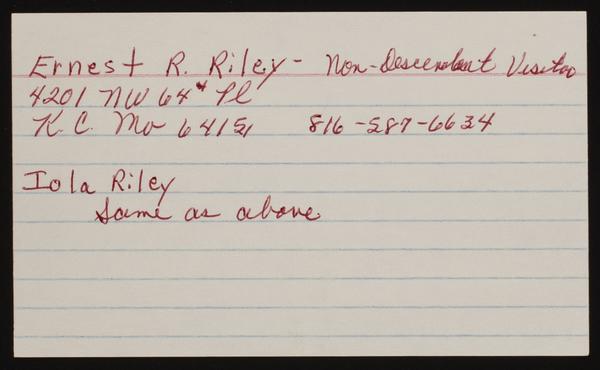 Ernest R. Riley - Non-Descendent Visitor
4201 NW 64th Pl
K.C. Mo 64151 816-587-6634
Iola Riley
Same as above